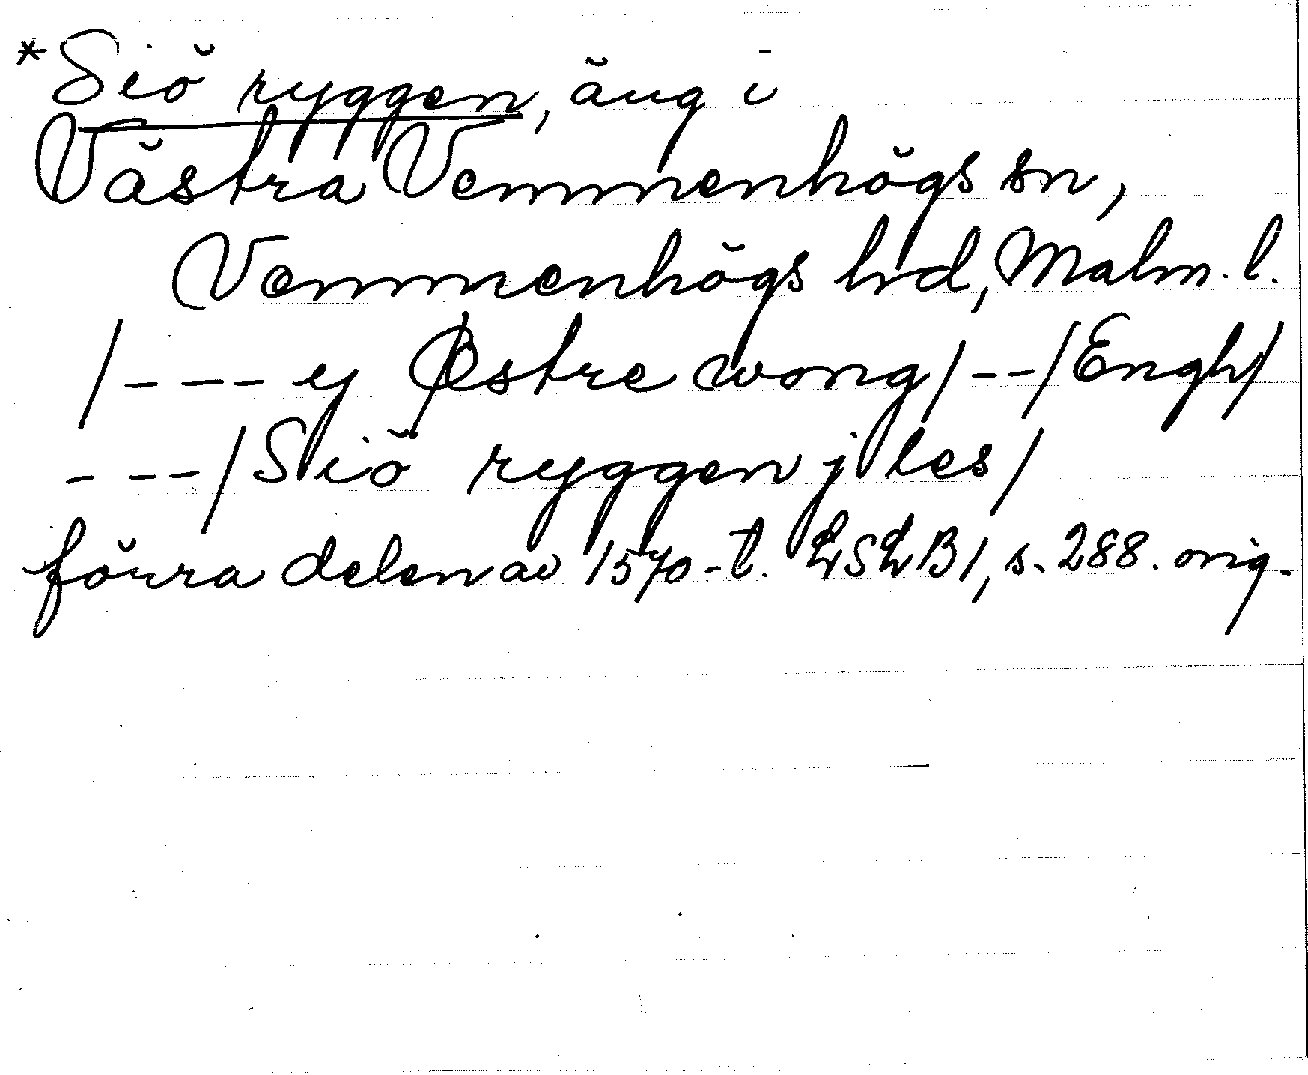 *Siö ryggen, äng i
Västra Vemmenhögs sn,
Vemmenhögs hd, Malm. l.
/--- y Østre wong/--/Engh/
---/Siö ryggen j les/
förra delen av 1570-t. LSLB1, s. 288. orig.